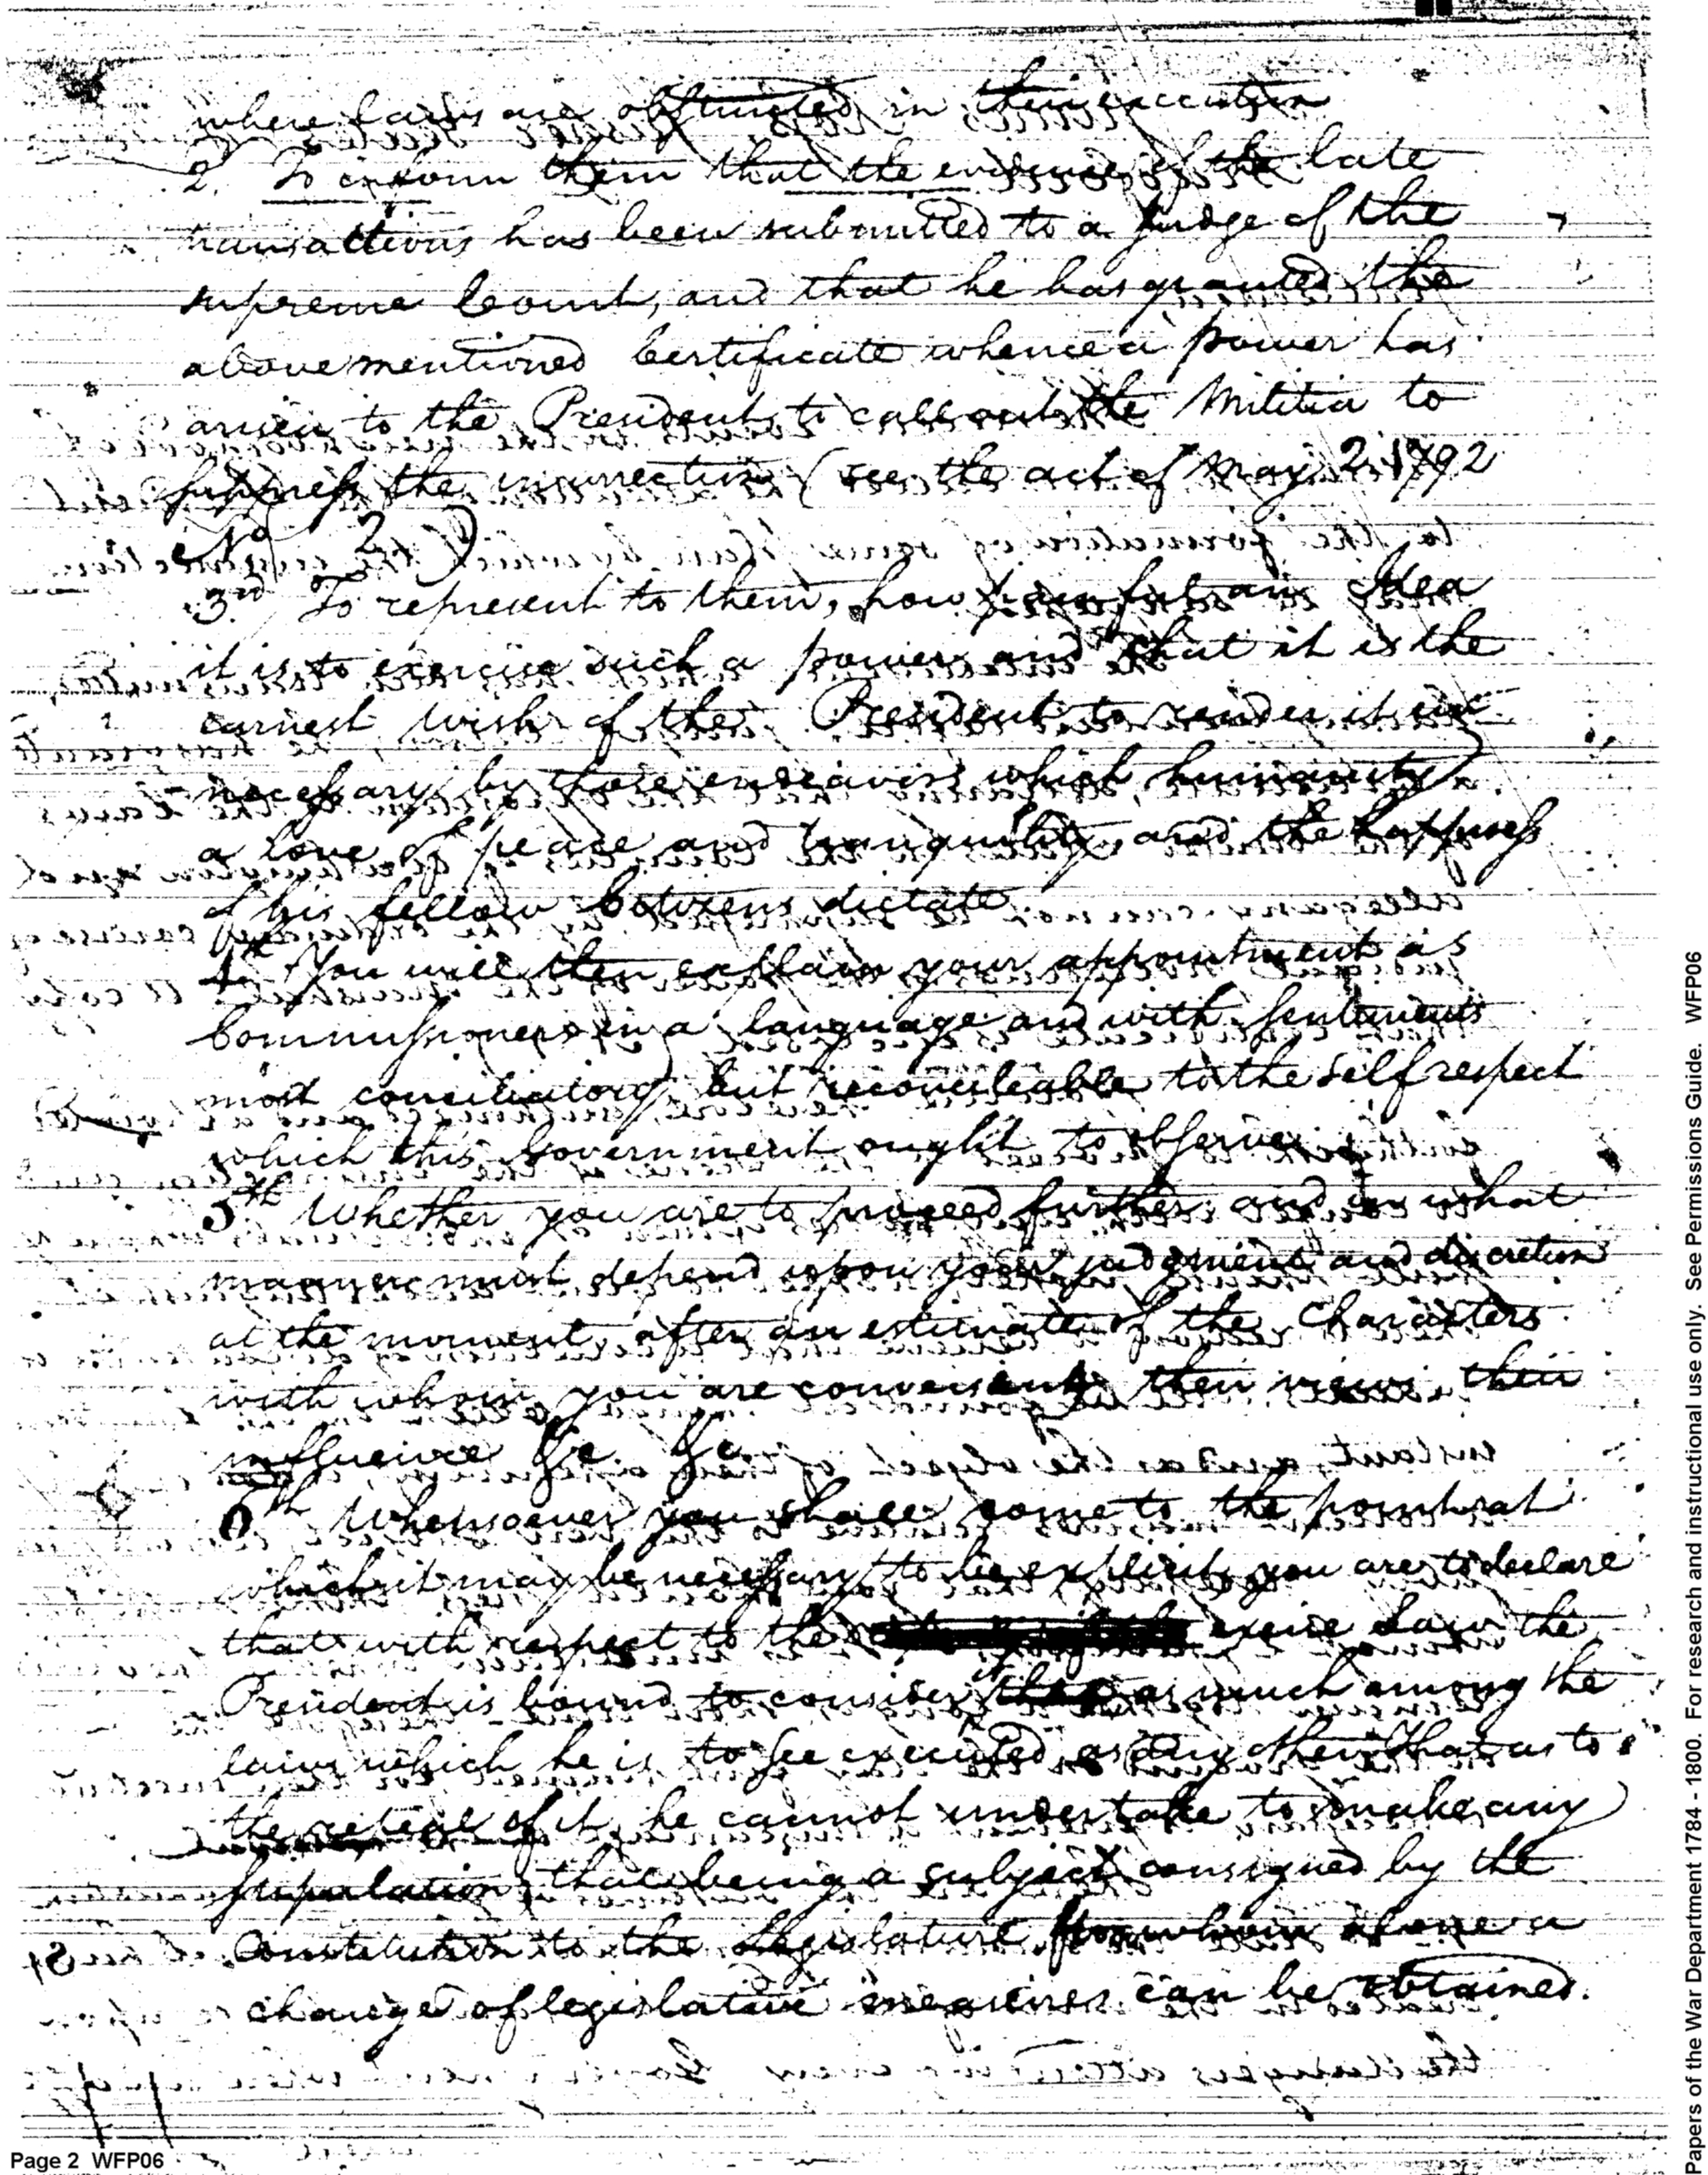 where Laws are obstructed in their execution
2. To inform them that the evidence of the late
transactions has been submitted to a Judge of the
supreme Court, and that he has granted the
abovementioned Certificate whence a power has
arisen to the President to call out the Militia to
suppress the insurrection (see the act of May 2. 1792
No 2)
3rd To represent to them, how painful an Idea
it is to exercise such a power and that it is the
earnest wish of the President to render it un
necessary by those endeavors which humanity
a love of peace and tranquility, and the happiness
of his fellow Citizens dictate
4th You will then explain your appointment as
Commissioners in a language and with sentiments
most conciliatory but reconcileable to the self respect
which this Government ought to observe
5th Whether you are to proceed further and in what
manner must depend upon your judgment and discretion
at the moment, after an estimate of the Characters
with whom you are conversant their views their
influence &c &c
6th Whensoever you shall come to the point at
which it may be necessary to be explicit, you are to declare
that with respect to the excise Law the
President is bound to consider it as much among the
laws which he is to see executed as any other. That as to
the repeal of it, he cannot undertake to make any
stipulation, that being a subject consigned by the
Constitution to the Legislature from whom alone a
change of legislative measures can be obtained.
Page 2 WFP06
Papers of the War Department 1784 - 1800. For research and instructional use only. See Permissions Guide. WFP06